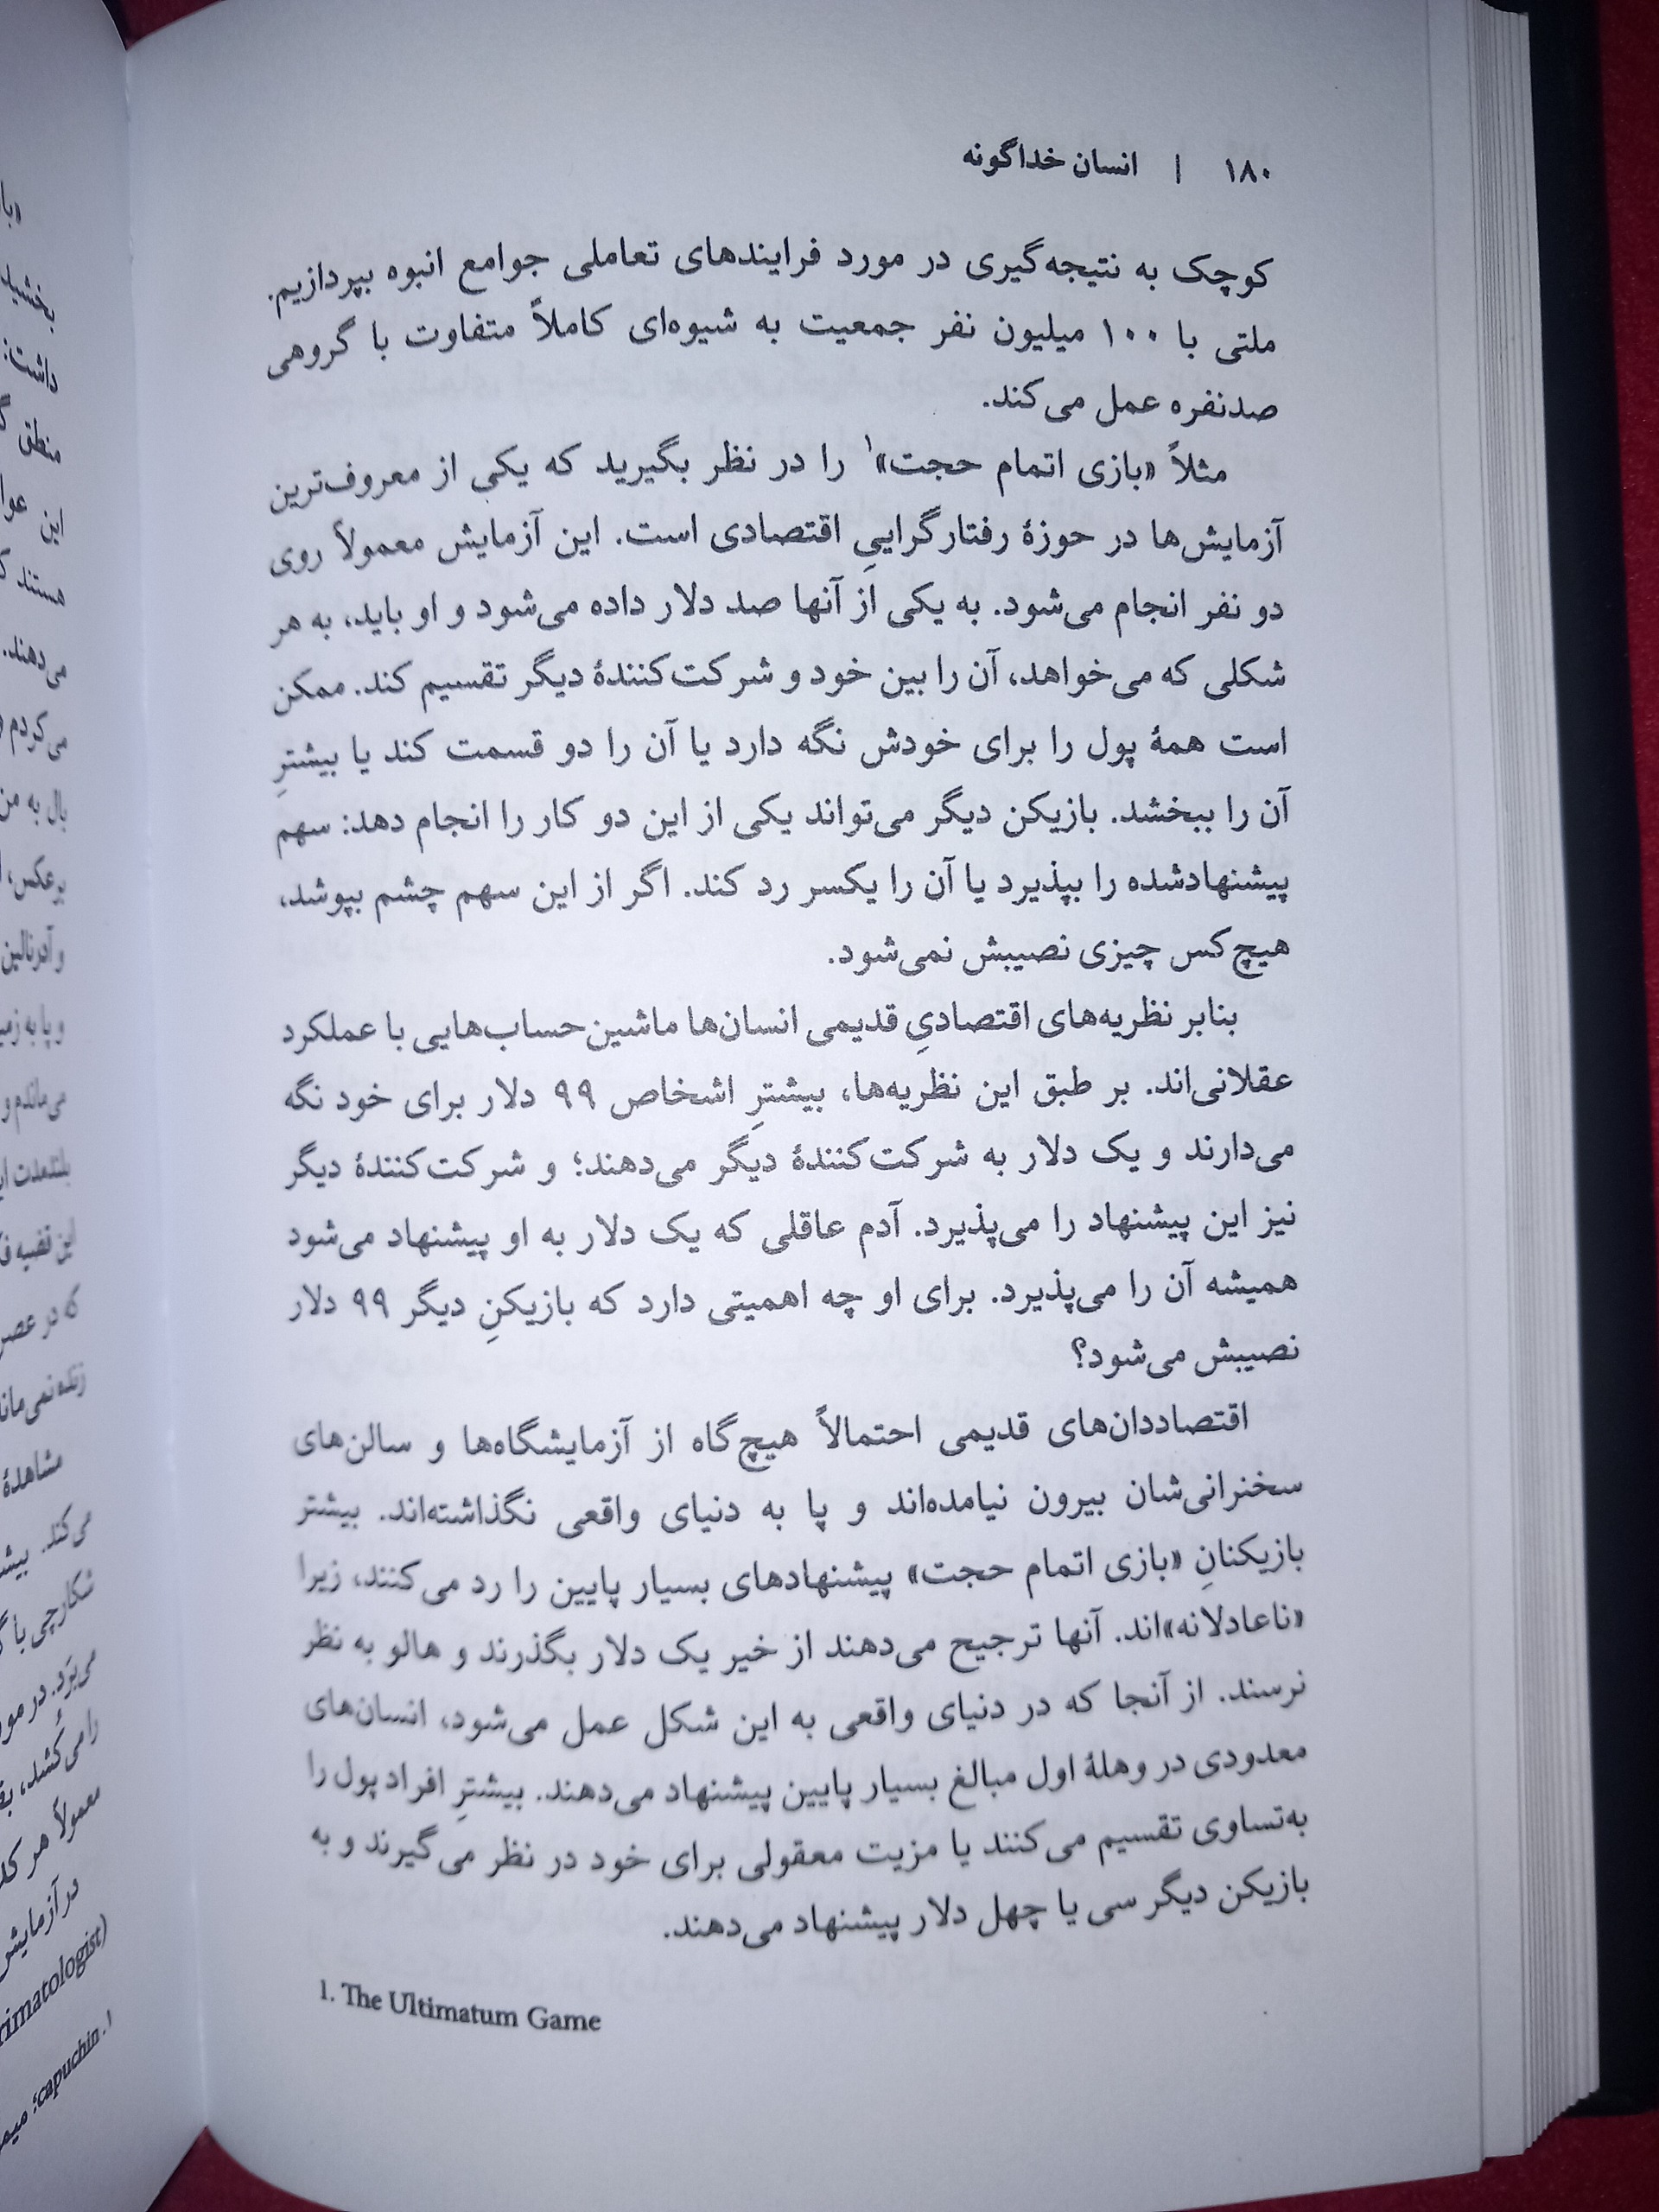 ۱۸۰ | انسان خداگونه
کوچک به نتیجه‌گیری در مورد فرایندهای تعاملی جوامع انبوه بپردازیم.
ملتی با ۱۰۰ میلیون نفر جمعیت به شیوه‌ای کاملاً متفاوت با گروهی
صدنفره عمل می‌کند.
مثلاً «بازی اتمام حجت»۱ را در نظر بگیرید که یکی از معروف‌ترین
آزمایش‌ها در حوزهٔ رفتارگراییِ اقتصادی است. این آزمایش معمولاً روی
دو نفر انجام می‌شود. به یکی از آنها صد دلار داده می‌شود و او باید، به هر
شکلی که می‌خواهد، آن را بین خود و شرکت‌کنندهٔ دیگر تقسیم کند. ممکن
است همهٔ پول را برای خودش نگه دارد یا آن را دو قسمت کند یا بیشترِ
آن را ببخشد. بازیکن دیگر می‌تواند یکی از این دو کار را انجام دهد: سهم
پیشنهادشده را بپذیرد یا آن را یکسر رد کند. اگر از این سهم چشم بپوشد،
هیچ‌کس چیزی نصیبش نمی‌شود.
بنابر نظریه‌های اقتصادیِ قدیمی انسان‌ها ماشین‌حساب‌هایی با عملکرد
عقلانی‌اند. بر طبق این نظریه‌ها، بیشترِ اشخاص ۹۹ دلار برای خود نگه
می‌دارند و یک دلار به شرکت‌کنندهٔ دیگر می‌دهند؛ و شرکت‌کنندهٔ دیگر
نیز این پیشنهاد را می‌پذیرد. آدم عاقلی که یک دلار به او پیشنهاد می‌شود
همیشه آن را می‌پذیرد. برای او چه اهمیتی دارد که بازیکنِ دیگر ۹۹ دلار
نصیبش می‌شود؟
اقتصاددان‌های قدیمی احتمالاً هیچ‌گاه از آزمایشگاه‌ها و سالن‌های
سخنرانی‌شان بیرون نیامده‌اند و پا به دنیای واقعی نگذاشته‌اند. بیشتر
بازیکنانِ «بازی اتمام حجت» پیشنهادهای بسیار پایین را رد می‌کنند، زیرا
«ناعادلانه»اند. آنها ترجیح می‌دهند از خیر یک دلار بگذرند و هالو به نظر
نرسند. از آنجا که در دنیای واقعی به این شکل عمل می‌شود، انسان‌های
معدودی در وهلهٔ اول مبالغ بسیار پایین پیشنهاد می‌دهند. بیشترِ افراد پول را
به‌تساوی تقسیم می‌کنند یا مزیت معقولی برای خود در نظر می‌گیرند و به
بازیکن دیگر سی یا چهل دلار پیشنهاد می‌دهند.
1. The Ultimatum Game
بخشید
داشت:
منطق
این
هستند
می‌دهند.
می‌کردم
بال به من
برعکس،
و آدرنالین
و پا به
می‌ماندم و
بلندمدت
این قضیه
که در عصر
زنده نمی‌ماند
مشاهدهٔ
می‌کند.
شکارچی با
می‌بَرَد. در
را می‌کُشد،
معمولاً هر
در آزمایش
۱. capuchin؛